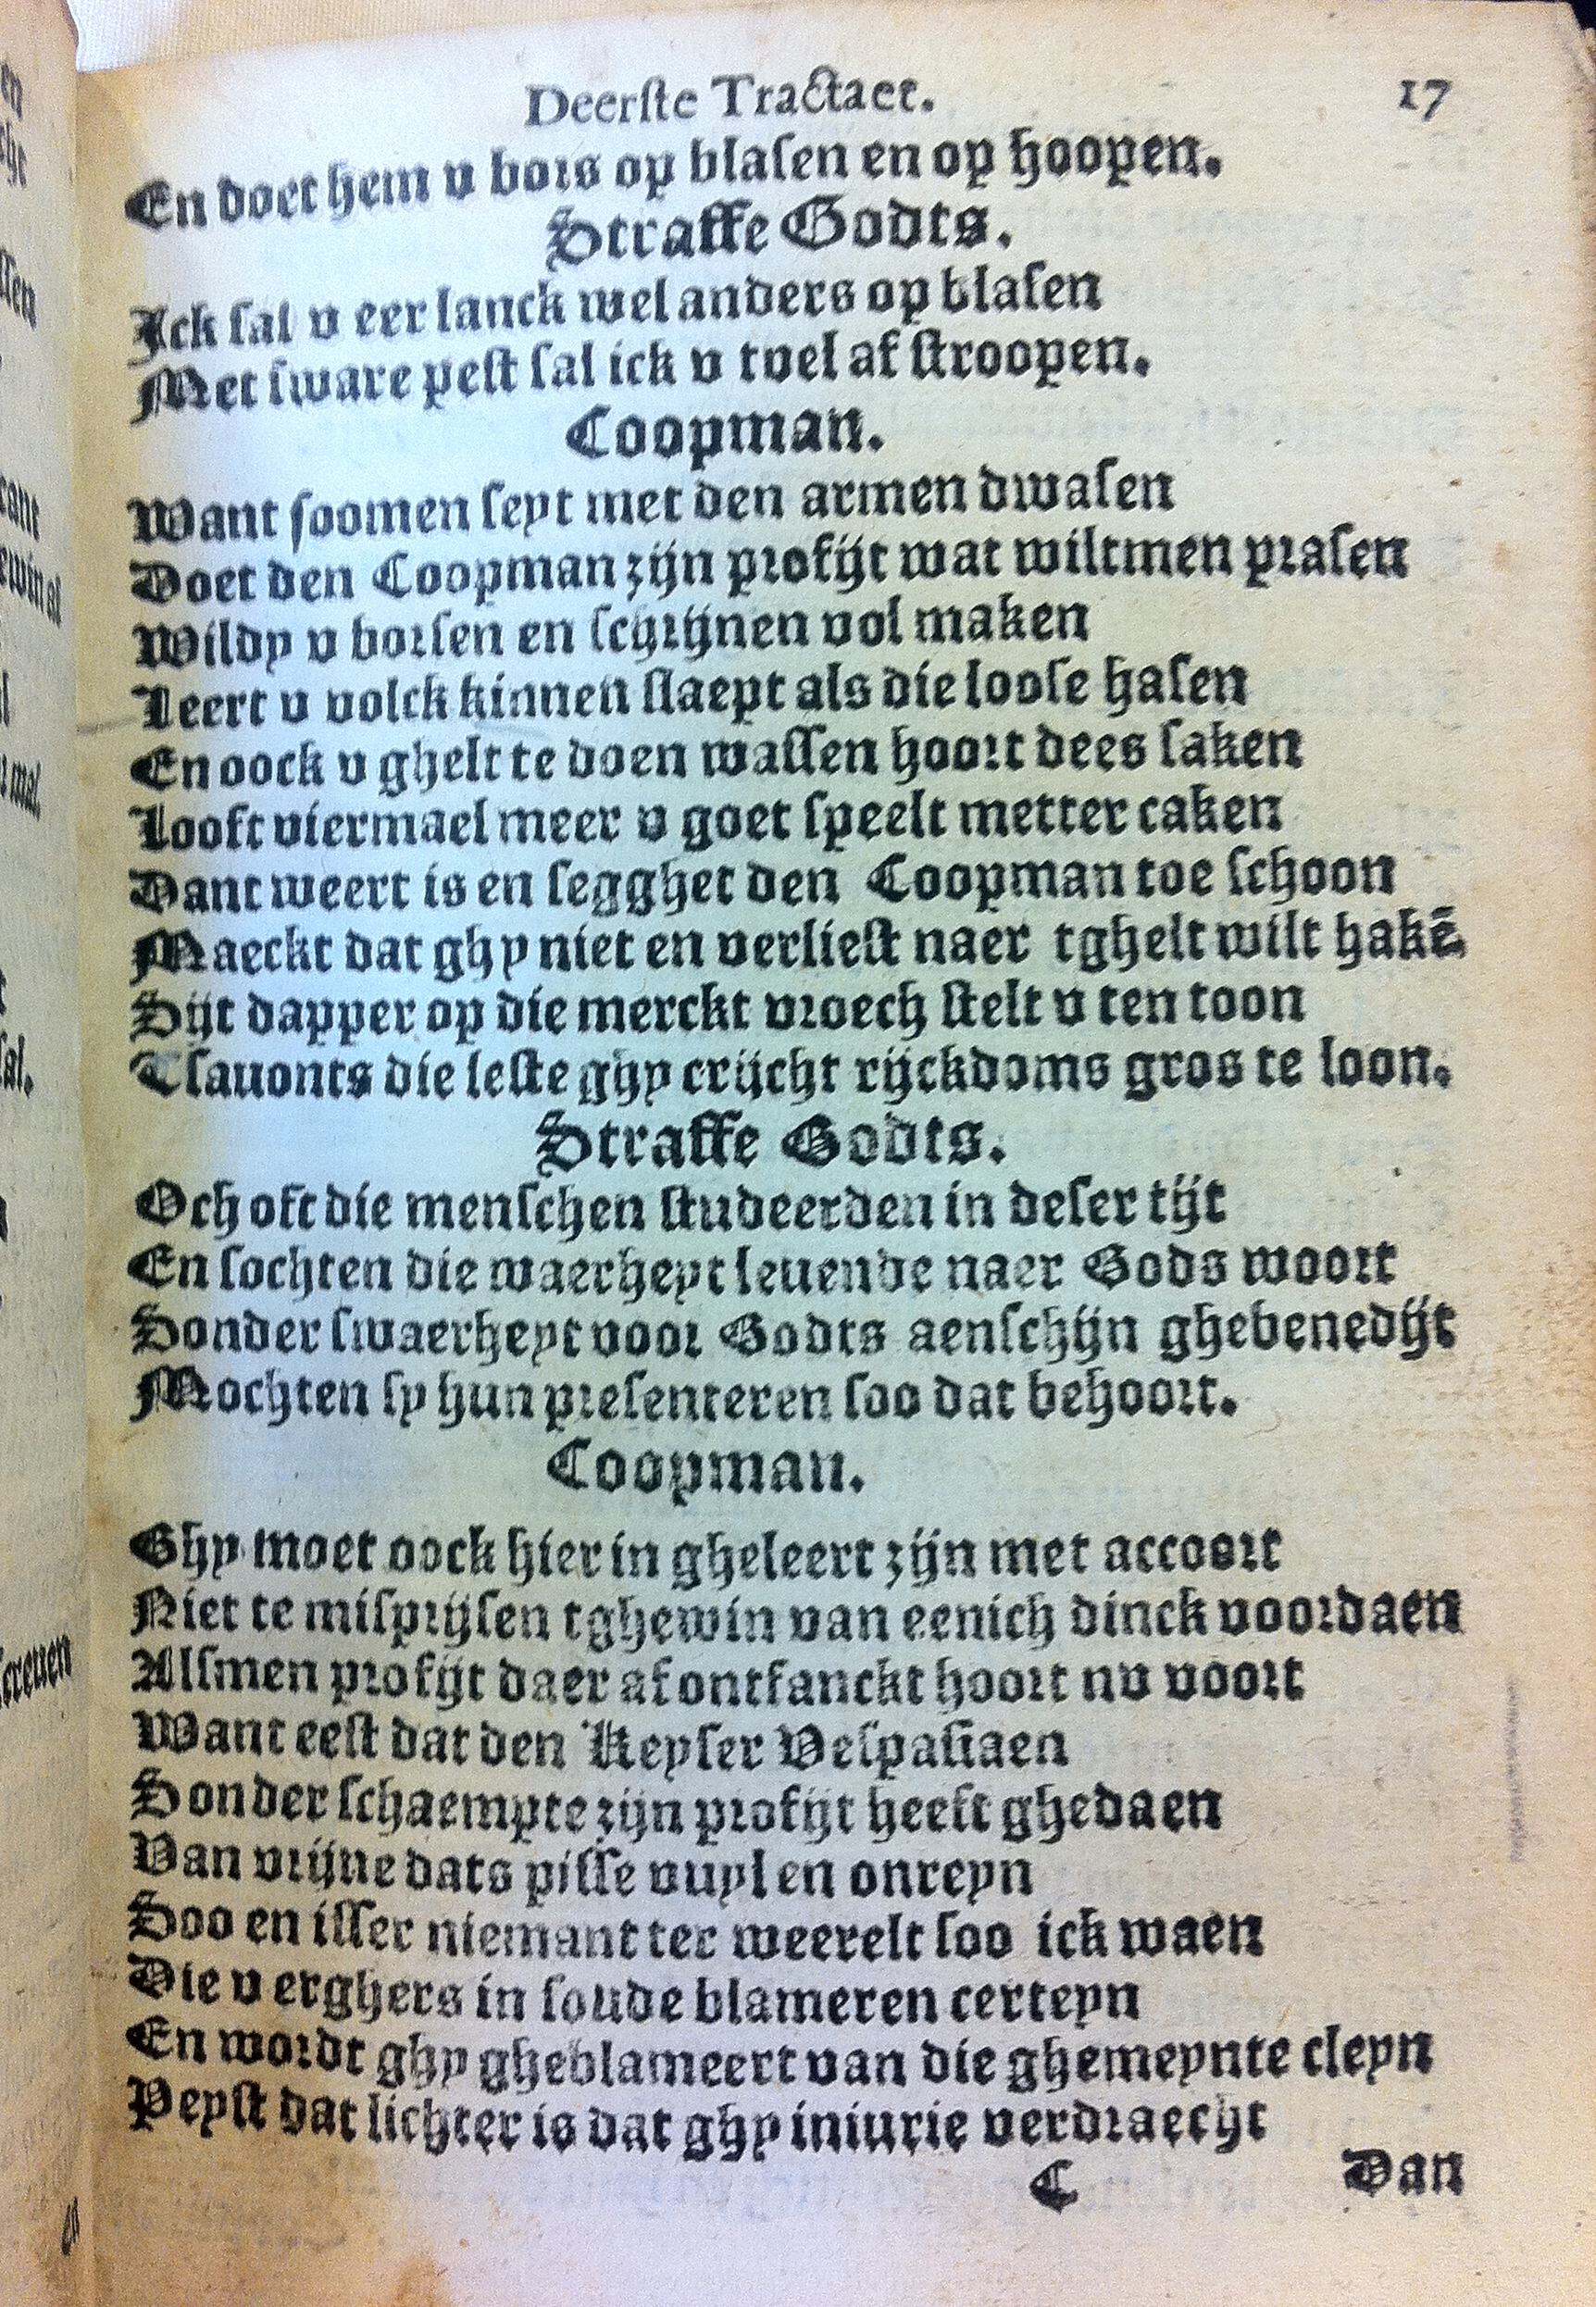 Deerſte Tractaet. 17
En doet hem v bors op blaſen en op hoopen.
Straffe Godts.
Ick ſal v eer lanck wel anders op blaſen
Met ſware peſt ſal ick v tvel af ſtroopen.
Coopman.
Want ſoomen ſeyt met den armen dwaſen
Doet den Coopman zijn profijt wat wiltmen praſen
Wildy v borſen en ſchrijnen vol maken
Leert v volck kinnen ſlaept als die looſe haſen
En oock v ghelt te doen waſſen hoort dees ſaken
Looft viermael meer v goet ſpeelt metter caken
Dant weert is en ſegghet den Coopman toe ſchoon
Maeckt dat ghy niet en verlieſt naer tghelt wilt hakẽ
Sijt dapper op die merckt vroech ſtelt v ten toon
Tſauonts die leſte ghy crijcht rijckdoms gros te loon.
Straffe Godts.
Och oft die menſchen ſtudeerden in deſer tijt
En ſochten die waerheyt leuende naer Gods woort
Sonder ſwaerheyt voor Godts aenſchijn ghebenedijt
Mochten ſy hun preſenteren ſoo dat behoort.
Coopman.
Ghy moet oock hier in gheleert zijn met accoort
Niet te miſprijſen tghewin van eenich dinck voordaen
Alſmen profijt daer af ontfanckt hoort nv voort
Want eeſt dat den Keyſer Veſpaſiaen
Sonder ſchaempte zijn profijt heeft ghedaen
Van vrijne dats piſſe vuyl en onreyn
Soo en iſſer niemant ter weerelt ſoo ick waen
Die v erghers in ſoude blameren certeyn
En wordt ghy gheblameert van die ghemeynte cleyn
Peyſt dat lichter is dat ghy iniurie verdraecht
C Dan